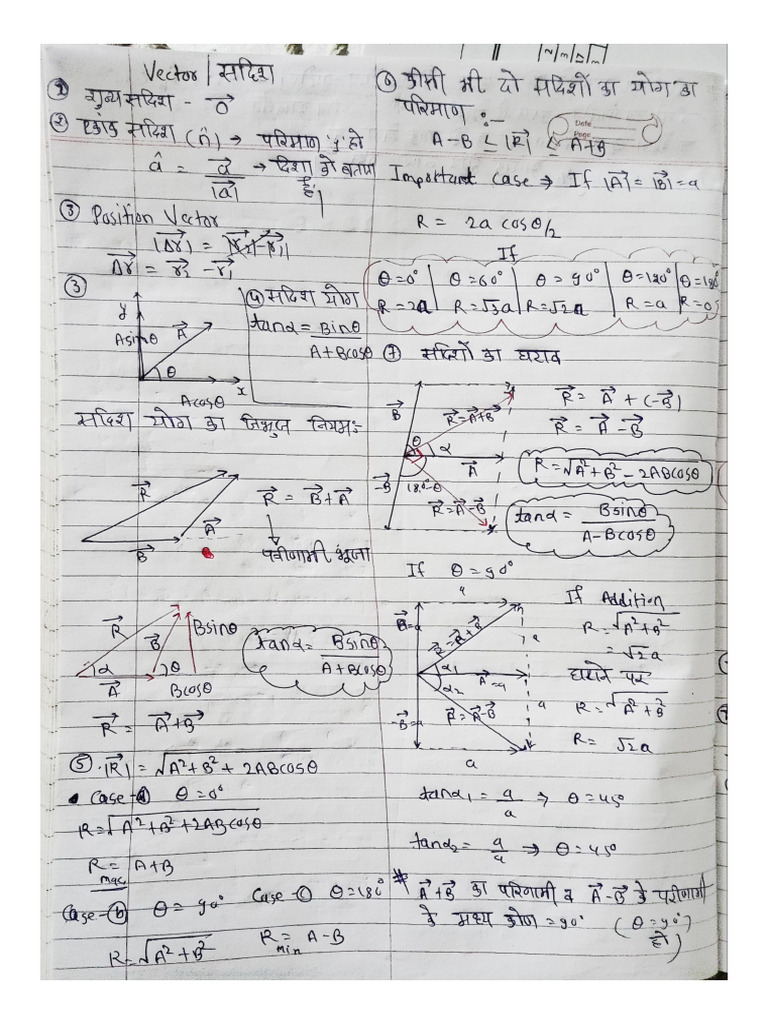 Vector | सदिश
① शून्य सदिश - →0
② एकांक सदिश (n̂) → परिमाण '1' हो
â = a⃗ / |a⃗| → दिशा को बताता है।
③ Position Vector
|Δr⃗| = |r⃗₂ - r⃗₁|
Δr⃗ = r⃗₂ - r⃗₁
③
y
A sinθ
A⃗
θ
x
A cosθ
④ सदिश योग
tanα = Binθ / A+Bcosθ
सदिश योग का त्रिभुज नियम:-
R⃗
A⃗
B⃗
B
R⃗ = B⃗+A⃗
परीणामी भूजा
R⃗
B⃗
Bsinθ
α
θ
A⃗
Bcosθ
tanα = Bsinθ / A+Bcosθ
R⃗ = A⃗+B⃗
⑤ |R⃗| = √A²+B²+2ABcosθ
Case-ⓐ θ=0°
R=√A²+B²+2ABcosθ
R = A+B
max
Case-ⓑ θ = 90°
R=√A²+B²
Case-ⓒ θ=180°
R = A-B
min
⑥ कीसी भी दो सदिशों का योग का
परिमाण :-
Date
Page
A-B ≤ |R⃗| ≤ A+B
Important case ⇒ If |A⃗| = |B⃗| = a
R = 2a cosθ/2
If
θ=0° | θ=60° | θ=90° | θ=120° | θ=180°
R=2a | R=√3a | R=√2a | R=a | R=0
⑦ सदिशों का घटाव
B⃗
R⃗=A⃗+B⃗
θ
α
A⃗
-B⃗
180°-θ
R⃗=A⃗-B⃗
R⃗ = A⃗ + (-B⃗)
R⃗ = A⃗ - B⃗
R=√A²+B²-2ABcosθ
tanα = Bsinθ / A-Bcosθ
If θ=90°
a
B⃗=a
R⃗=A⃗+B⃗
a
α₁
A⃗=a
α₂
-B⃗=a
R⃗=A⃗-B⃗
a
a
If Addition
R=√A²+B²
= √2a
घटाने पर
R=√A²+B²
R= √2a
tanα₁ = a/a ⇒ θ=45°
tanα₂ = a/a ⇒ θ=45°
# A⃗+B⃗ का परिणामी व A⃗-B⃗ के परीणामी
के मध्य कोण = 90° (θ=90° हो)